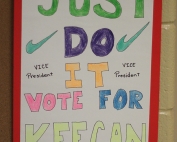 JUST
DO
VICE President
IT
VICE President
VOTE FOR
KEEGAN